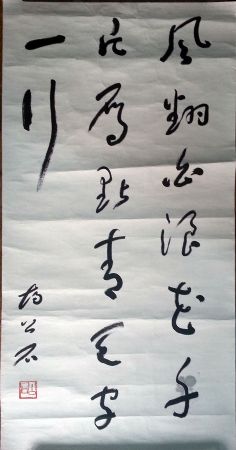 風翻白浪花千
片雁點青天字
一行